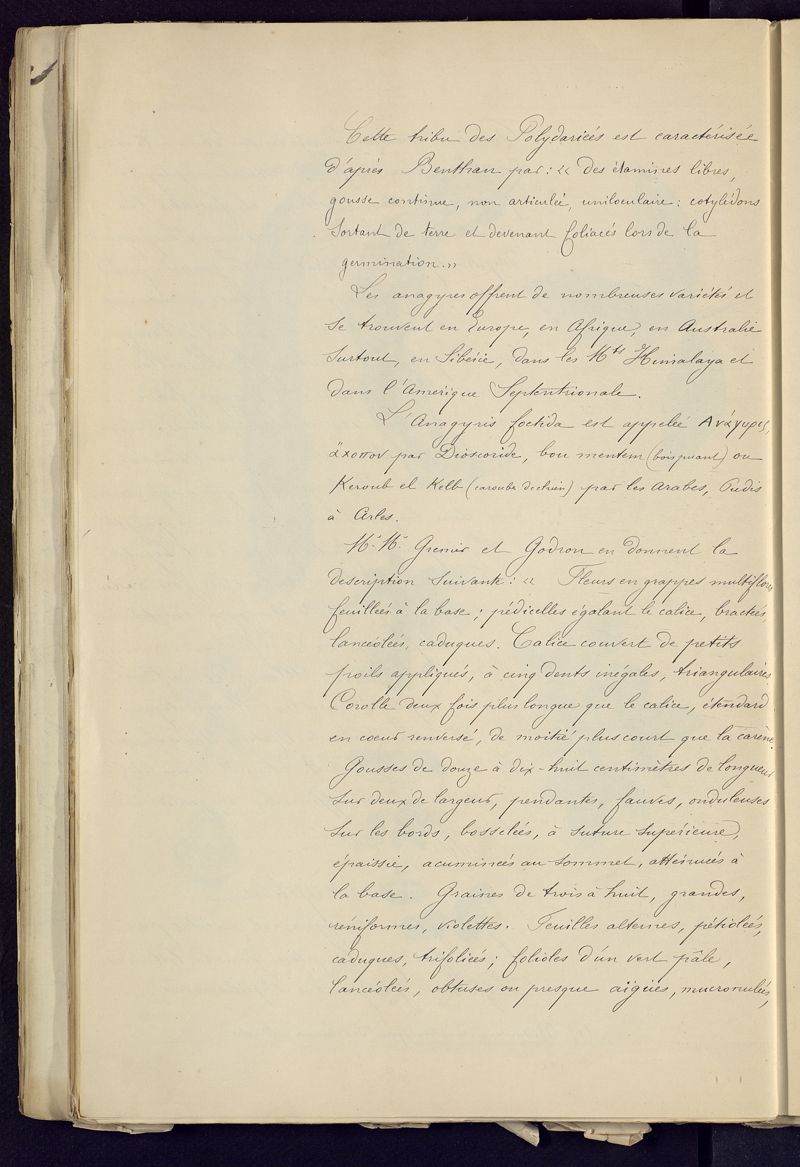 Cette tribu des Polydariées est caractérisée
d'après Benthan par : « des étamines libres,
gousse continue, non articulée, uniloculaire : cotylédons
sortant de terre et devenant foliacés lors de la
germination. »
Les anagyres offrent de nombreuses variétés et
se trouvent en Europe, en Afrique, en Australie
surtout, en Sibérie, dans les Mts Himalaya et
dans l'Amérique Septentrionale.
L'Anagyris foetida est appelée Ανάγυρις,
ἄκοπον par Dioscoride, bou mentem (bois puant) ou
Keroub el Kelb (caroube de chien) par les arabes, Pudis
à Arles.
M.M. Grenier et Godron en donnent la
description suivante : « Fleurs en grappes multiflores
feuillées à la base ; pédicelles égalant le calice, bractées
lancéolées, caduques. Calice couvert de petits
poils appliqués, à cinq dents inégales, triangulaires
Corolle deux fois plus longue que le calice, étendard
en coeur renversé, de moitié plus court que la carène.
Gousses de douze à dix-huit centimètres de longueur
sur deux de largeur, pendantes, fauves, onduleuses
sur les bords, bosselées, à suture supérieure,
épaissie, acuminées au sommet, atténuées à
la base. Graines de trois à huit, grandes,
réniformes, violettes. Feuilles alternes, pétiolées,
caduques, trifoliées ; folioles d'un vert pâle,
lancéolées, obtuses ou presque aigües, mucronulées,